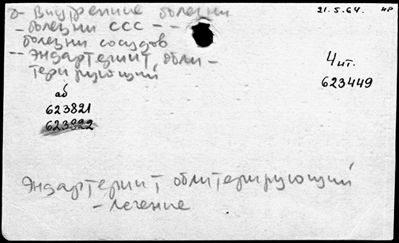 Внутренние болезни
21.5.64.
- болезни ССС - -
болезни сосудов
-- Эндартериит, обли-
терирующий
4 ит.
623449
аб
623821
623822
Эндартериит облитерирующий
- лечение